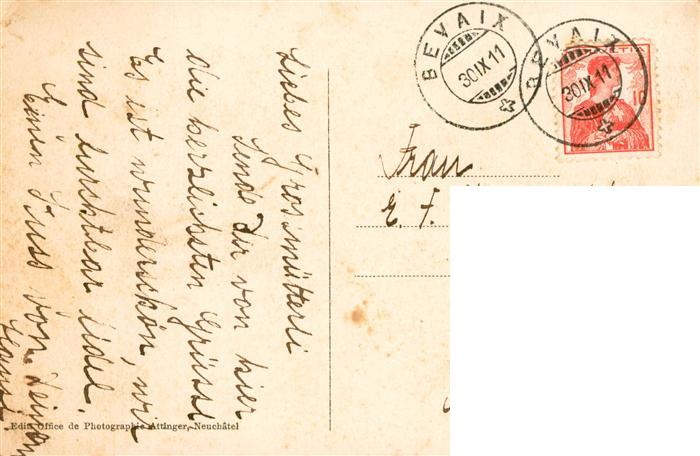 Liebes Grosimütterli
Sende Dir von hier
die herzlichsten Grüsse
Es ist wunderschön, wir
sind furchtbar fidel.
Einen Kuss von Deinem
Hans.
BEVAIX
30 IX 11
BEVAIX
30 IX 11
HELVETIA
10
Frau
E. F.
Edit. Office de Photographie Attinger, Neuchâtel